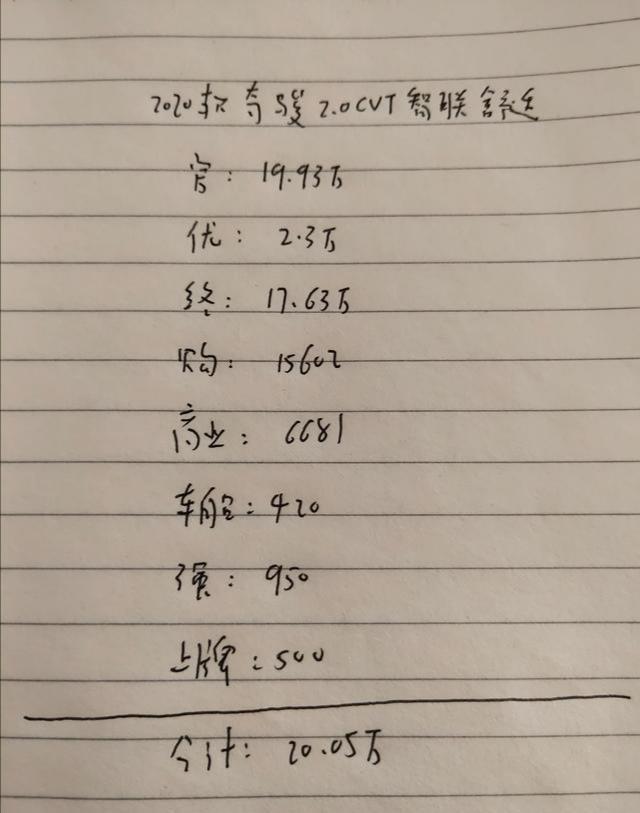 2020款奇骏2.0CVT智联舒适
官：19.93万
优：2.3万
终：17.63万
购：15602
商业：6681
车船：420
强：950
上牌：500
合计：20.05万